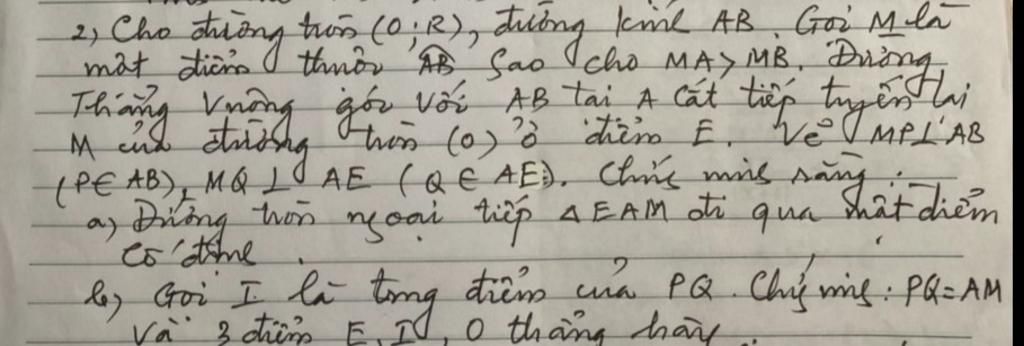 2) Cho đường tròn (O;R), đường kính AB. Gọi M là
một điểm thuộc AB sao cho MA>MB. Đường
Thẳng vuông góc với AB tại A cắt tiếp tuyến tại
M của đường tròn (O) ở điểm E. Vẽ MP⊥AB
(P∈AB), MQ⊥AE (Q∈AE). Chứng minh rằng:
a) Đường tròn ngoại tiếp ΔEAM đi qua một điểm
cố định.
b) Gọi I là trung điểm của PQ. Chứng minh: PQ=AM
và 3 điểm E, I, O thẳng hàng.